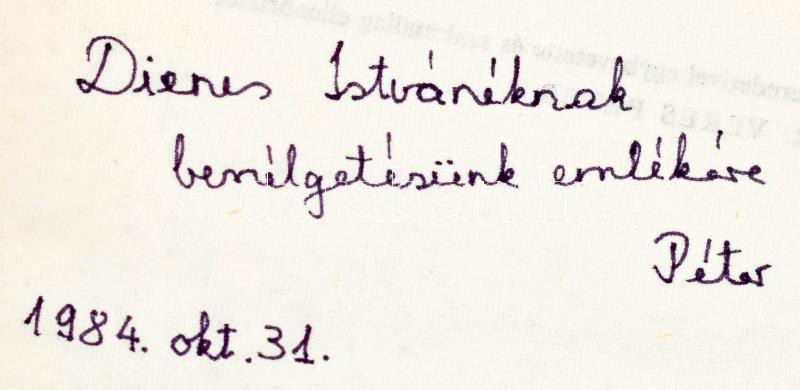 Dienes Istvánéknak
beszélgetésünk emlékére
Péter
1984. okt. 31.